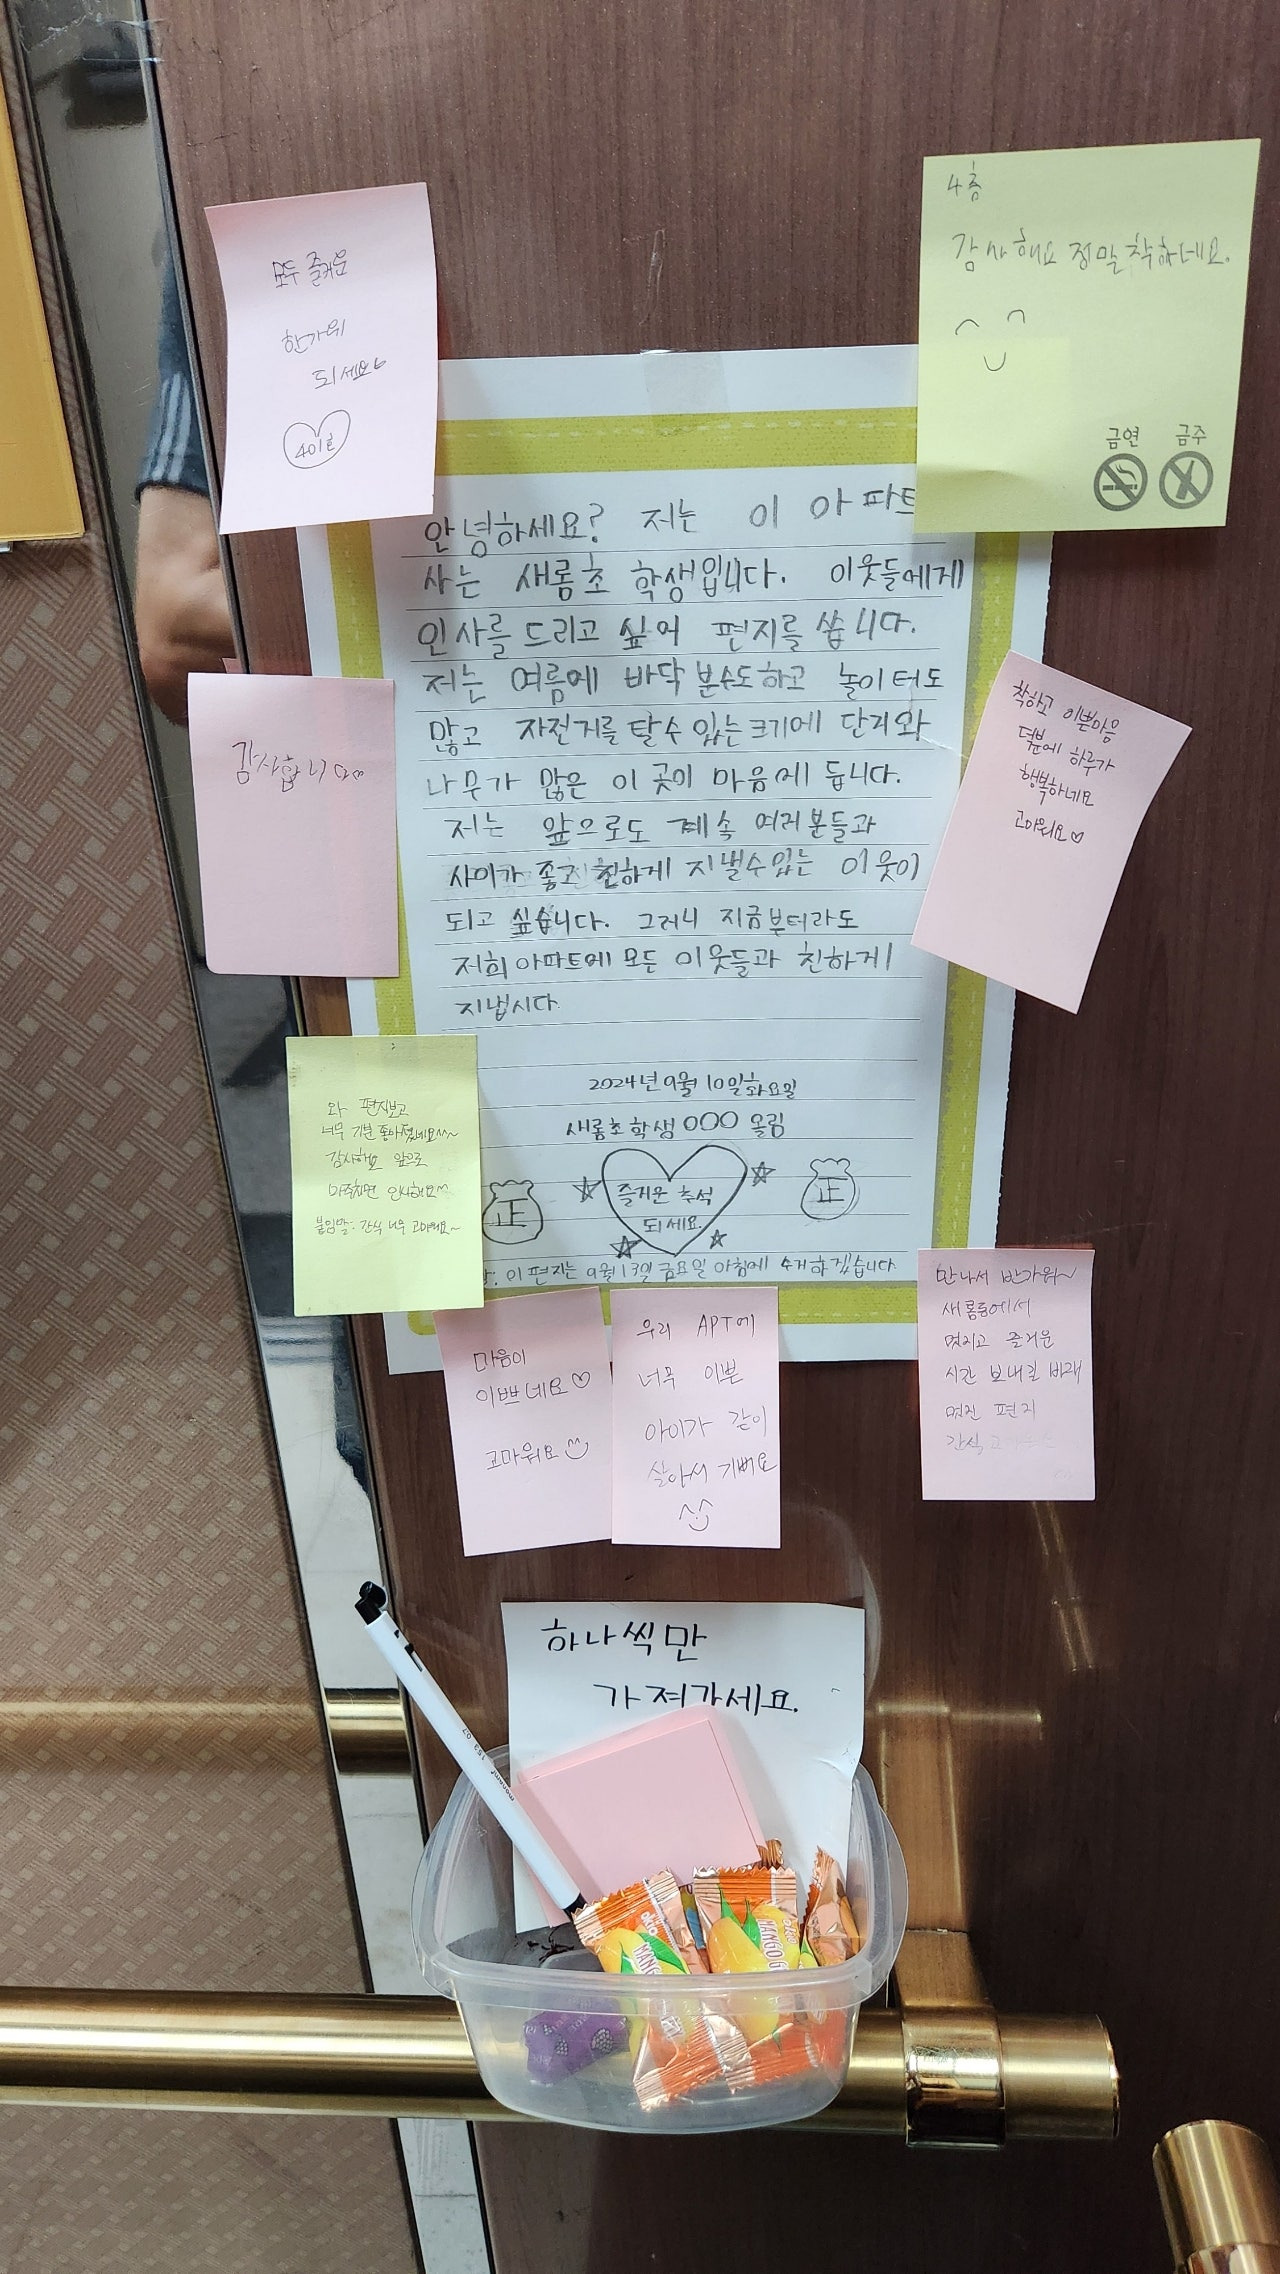 모두 즐거운
한가위
되세요
401호
4층
감사해요 정말착하네요.
금연 금주
안녕하세요? 저는 이 아파트
사는 새롬초 학생입니다. 이웃들에게
인사를 드리고 싶어 편지를 씁니다.
저는 여름에 바닥분수도하고 놀이터도
많고 자전거를 탈수 있는 크기에 단지와
나무가 많은 이 곳이 마음에 듭니다.
저는 앞으로도 계속 여러분들과
사이가 좋고 친하게 지낼수있는 이웃이
되고 싶습니다. 그러니 지금부터라도
저희아파트에 모든 이웃들과 친하게
지냅시다.
2024년 9월 10일 화요일
새롬초학생 OOO 올림
즐거운 추석
되세요.
正
正
이 편지는 9월 13일 금요일 아침에 수거하겠습니다
감사합니다
착하고 이쁜마음
덕분에 하루가
행복하네요
고마워요
와 편지보고
너무 기분 좋아졌네요^^~
감사해요 앞으로
마주치면 인사해요
붙임말: 간식 너무 고마워요~
마음이
이쁘네요
고마워요
우리 APT에
너무 이쁜
아이가 같이
살아서 기뻐요
만나서 반가워~
새롬동에서
멋지고 즐거운
시간 보내길 바래
멋진 편지
간식
하나씩만
가져가세요.
monami 153 0.7
MANGO
MANGO